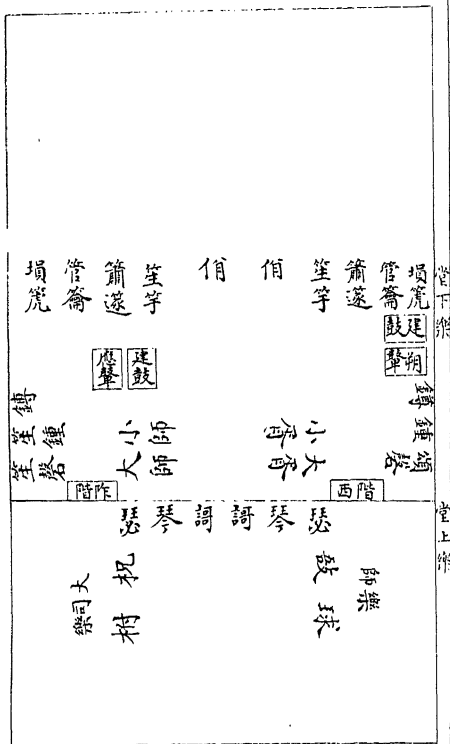 堂下樂
塤箎
管籥
簫篴
笙竽
佾
佾
笙竽
簫篴
管籥
塤箎
建鼓
朔鼙
建鼓
應鼙
鎛
鍾
頌磬
小胥
大胥
小師
大師
鎛
笙鍾
笙磬
西階
阼階
堂上樂
瑟
琴
謌
謌
琴
瑟
樂師
敔
球
柷
柎
大司樂